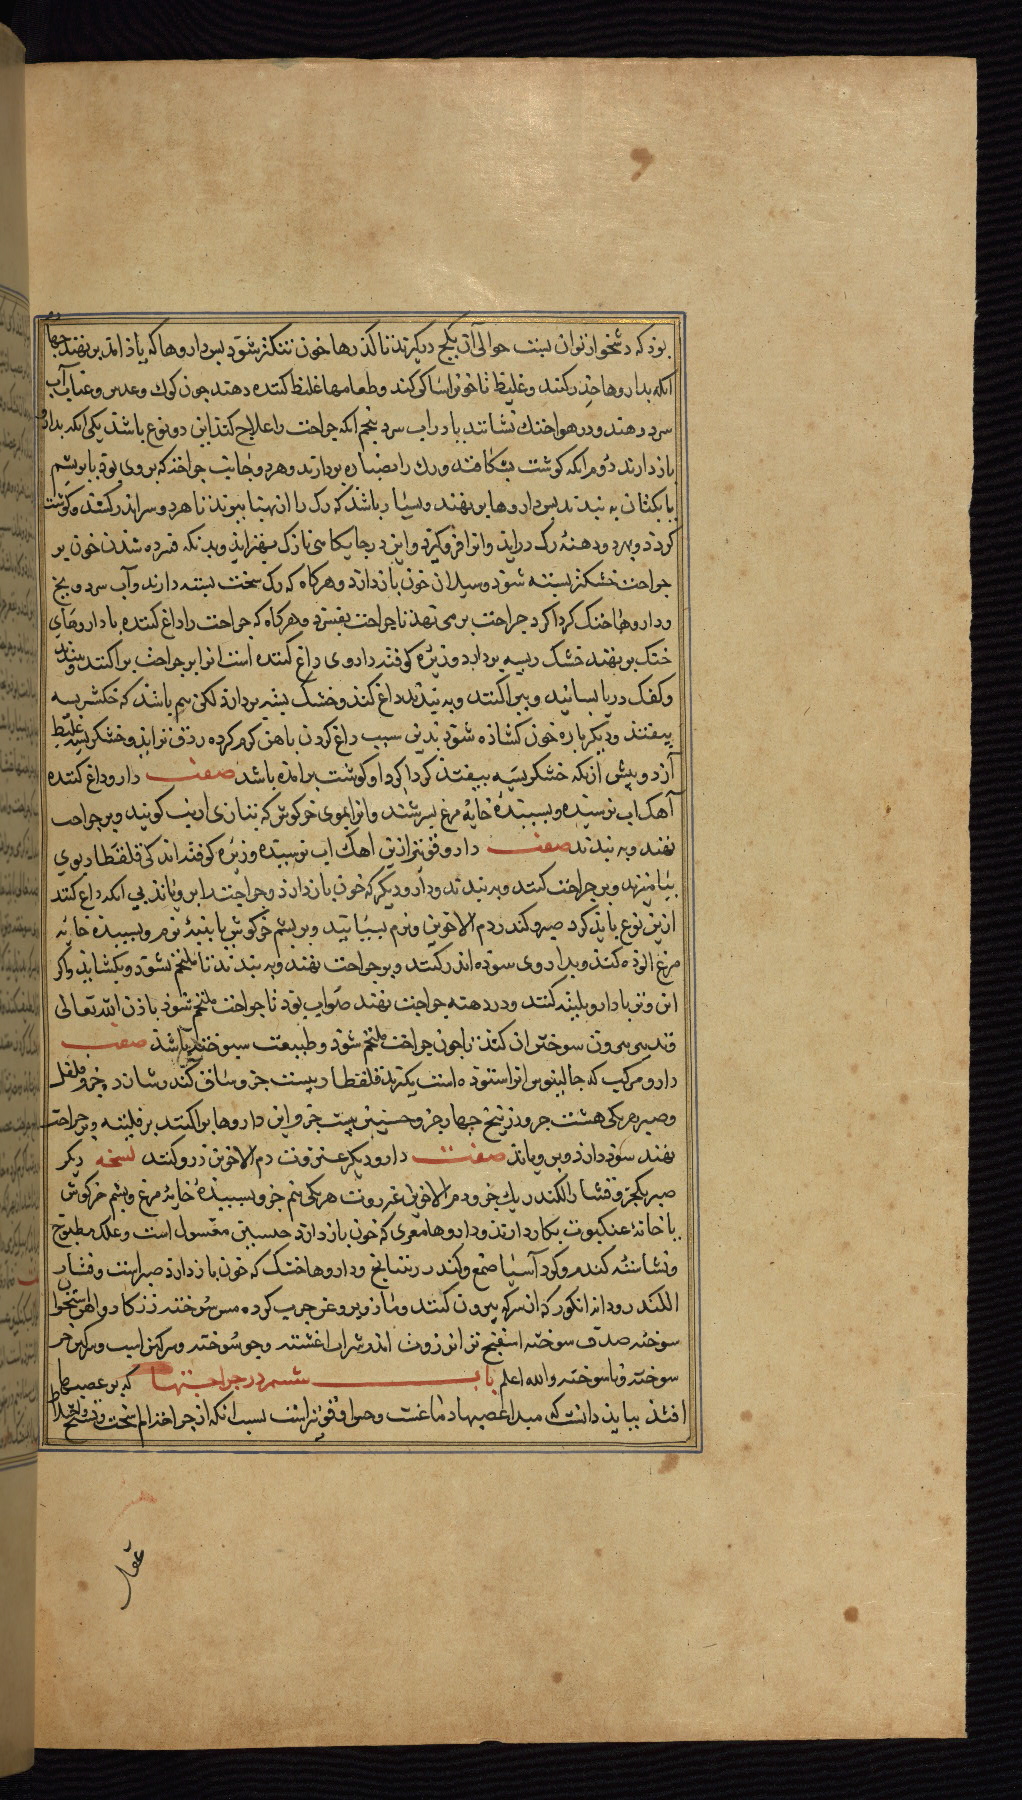 بود که دشخوار توان بست حوالی آن بگچ دیگرند تا گذرها خون تنگتر شود پس داروها که یاد آمد بر نهند چهارم
آنکه بداروها خدر کنند و غلیظ تا خونرا ساکن کند و طعامها غلیظ کننده دهند چون کوک و عدس و عناب و آب
سرد دهند و در هوا خنک نشانند با در آب سرد پنجم آنکه جراحت را علاج کنند این دو نوع باشد یکی آنکه بدارو
باز دارند دوم آنکه گوشت بشکافند و رگ را بصناره بردارند و هر دو جانب جراحت که بروی بود با بریشم
یا بکتان به بندند پس داروها بر نهند و بسیار باشد که رگ را از پهنا ببرند تا هر دو سر اندر کشد و گوشت
گردد و بهر دو دهنهٔ رگ در آید و آنرا فرو گیرد و این در جایگاهی نازک بهتر آید و بدانکه فسرده شدن خون بر
جراحت خشکتر بسته شود و سیلان خون باز دارد و هرگاه که رگ سخت بسته دارند و آب سرد و یخ
و داروها خنک گرداگرد جراحت برمی‌نهند تا جراحت بفسرد و هرگاه که جراحت را داغ کننده با داروهای
خنک بر نهند خشک ریسه بردارد و زیزه کوفته داروی داغ کننده است آنرا بر جراحت پراکنند و سنبد
و کفک دریا بسایند و بپراکنند و به بندند داغ کند و خشک ریشه بردارد لکن بیم باشد که خشکریسه
بیفتد و دیگر باره خون گشاده شود بدین سبب داغ کردن باهن گرم کرده زدن براید و خشکریسه غلیظ
آرد و پیش از آنکه خشکریسه بیفتد گرداگرد او گوشت برآمده باشد صفت دارو داغ کننده
آهک آب نرسیده و بسپیده خایهٔ مرغ بسرشند و آنرا بموی خرگوش که بتازی ارنب گویند و بر جراحت
نهند و به بندند صفت دارو قوی‌تر ازین آهک آب نرسیده و زیزه کوفته اندکی قلقطار بوی
بیامیزند و بر جراحت کنند و به بندند و دارو دیگر که خون باز دارد و جراحت را برویاند بی آنکه داغ کند
ازین نوع باید کرد صبر و کندر و دم الاخوین و نرم بسایند و بر پشم خرگوش یا پنبهٔ نرم و بسپیده خایهٔ
مرغ آلوده کنند و بدارو سوده اندر کنند و بر جراحت نهند و به بندند تا ملتحم نشود و بگشایند و اگر
این و نیز با دارو بلیته کنند و در دهنه جراحت نهند صواب بود تا جراحت ملتحم شود باذن الله تعالی
سوختن آن کنند تا چون جراحت ملتحم شود و طبیعت سوخته باشد صفت
دارو مرکب که جالینوس آنرا ستوده است بگیرند قلقطار بیست جزو ساق کندر شانزده جزو قلقل
و صبر هر یکی هشت جزو زرنیخ چهار جزو حسیسن بیست جزو این داروها پراکنند بر فلیته و بر جراحت
نهند سود دارد و برویاند صفت دارو دیگر عنزروت دم الاخوین زرو کنند نسخه دیگر
صبر یکجزو قشار الکندر یک جزو دم الاخوین عنزروت هر یکی نیم جزو بسپیدهٔ خایهٔ مرغ و پشم خرگوش
با خانهٔ عنکبوت بکار دارند و داروها مغری که خون باز دارد حسیسن مغسول است و علک مطبوخ
و نشاسته گندم و گرد آسیا صمغ و کندر ریتیانج و داروها خنک که خون باز دارد صبر است و قشار
الکندر و دانه انگور که از سرکه بیرون کنند و مازو بروغن چرب کرده مس سوخته زنگار دواهن استخوان
سوخته صدف سوخته اسفنج تر از زوت اندر شراب آغشته و جو سوخته و سرگین اسب و سرگین خر
سوخته و ناسوخته والله اعلم باب ششم در جراحتها که بر عصبها
افتد بباید دانست که مبدا عصبها دماغست و حس او قوی‌تر است بسبب آنکه از جراحت الم سخت و تشنج
عقار